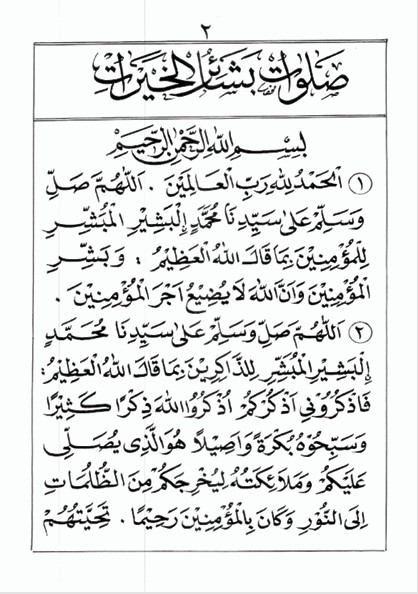 ٢
صَلَوَاتْ بَشَائِرُ الْخَيْرَاتْ
بِسْمِ اللهِ الرَّحْمٰنِ الرَّحِيْمِ
١ اَلْحَمْدُ لِلّٰهِ رَبِّ الْعَالَمِيْنَ . اَللّٰهُمَّ صَلِّ
وَسَلِّمْ عَلٰى سَيِّدِنَا مُحَمَّدٍ اِلْبَشِيْرِ الْمُبَشِّرِ
لِلْمُؤْمِنِيْنَ بِمَا قَالَ اللهُ الْعَظِيْمُ : وَبَشِّرِ
الْمُؤْمِنِيْنَ وَاَنَّ اللهَ لَا يُضِيْعُ اَجْرَ الْمُؤْمِنِيْنَ .
٢ اَللّٰهُمَّ صَلِّ وَسَلِّمْ عَلٰى سَيِّدِنَا مُحَمَّدٍ
اِلْبَشِيْرِ الْمُبَشِّرِ لِلذَّاكِرِيْنَ بِمَا قَالَ اللهُ الْعَظِيْمُ :
فَاذْكُرُوْنِى اَذْكُرْكُمْ اُذْكُرُوا اللهَ ذِكْرًا كَثِيْرًا
وَسَبِّحُوْهُ بُكْرَةً وَاَصِيْلًا هُوَ الَّذِى يُصَلِّى
عَلَيْكُمْ وَمَلَائِكَتُهُ لِيُخْرِجَكُمْ مِنَ الظُّلُمَاتِ
اِلَى النُّوْرِ وَكَانَ بِالْمُؤْمِنِيْنَ رَحِيْمًا . تَحِيَّتُهُمْ